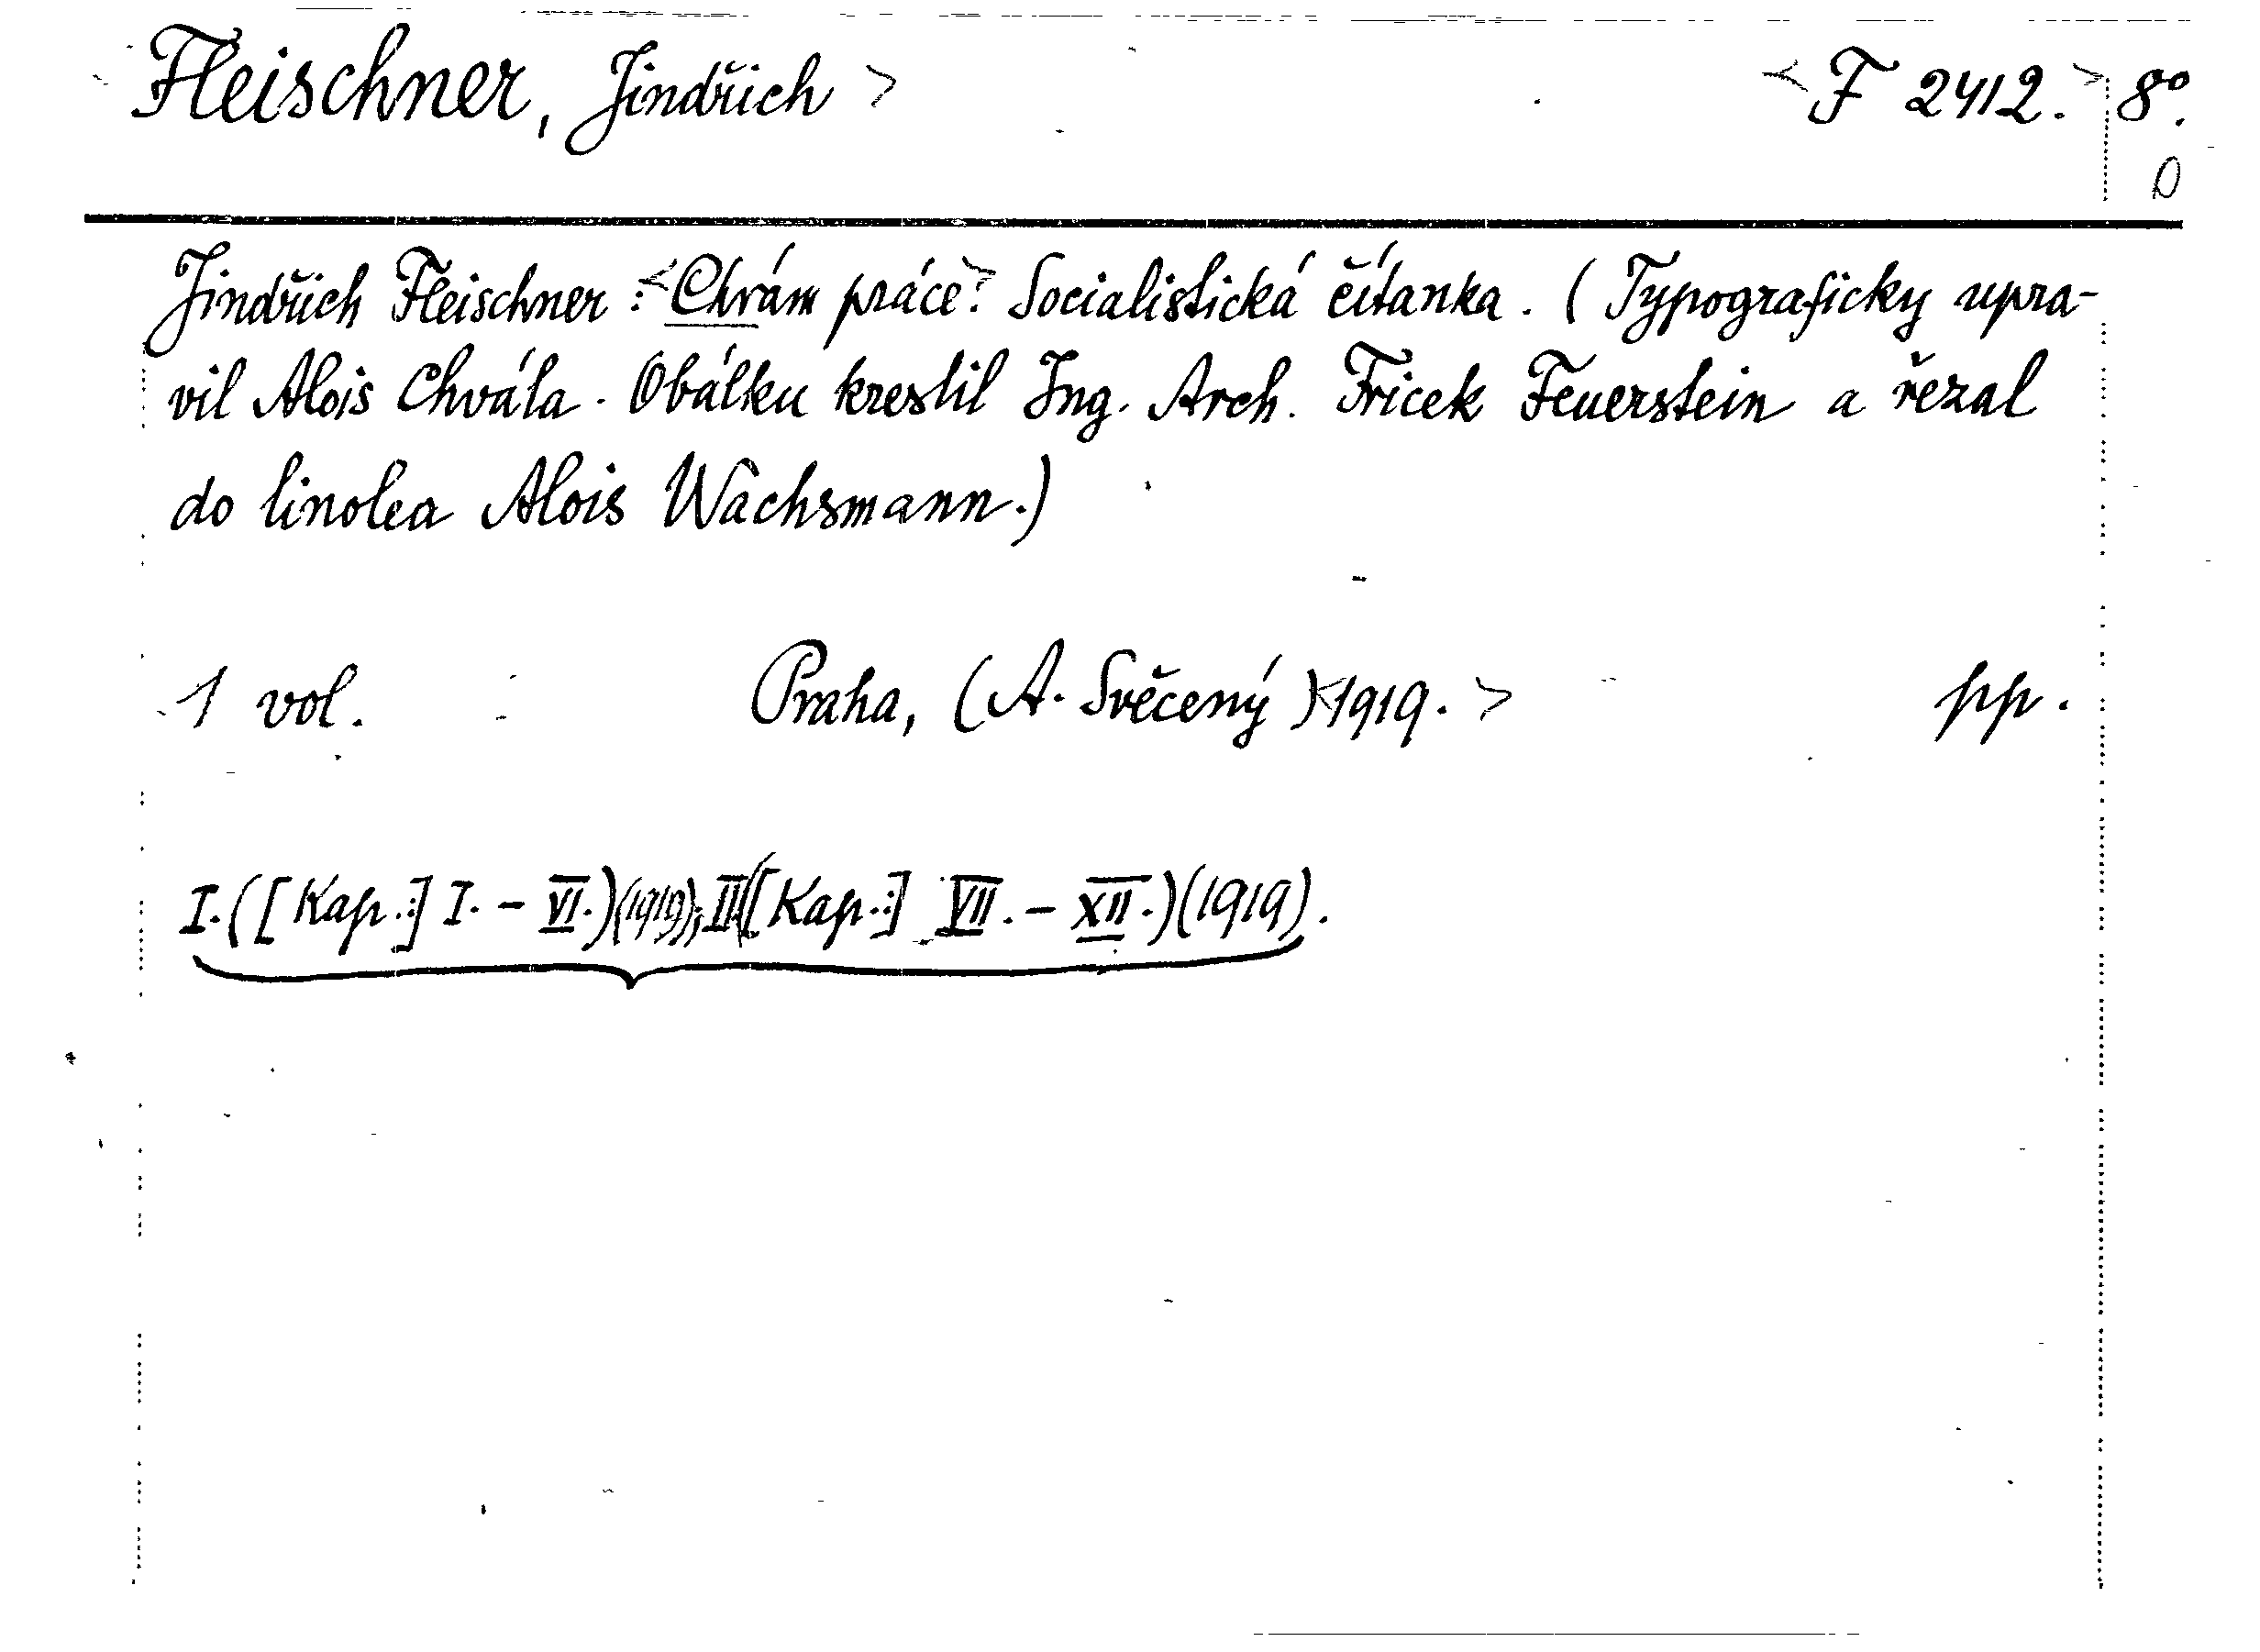 Fleischner, Jindřich > < F 2412. > 8°.
Jindřich Fleischner : <Chrám práce.> Socialistická čítanka. (Typograficky upra-
vil Alois Chvála. Obálku kreslil Ing. Arch. Fricek Feuerstein a řezal
do linolea Alois Wachsmann.)
1 vol. Praha, (A. Svěcený) <1919. > pp.
I. ([Kap.:] I. - VI.)(1919); II. ([Kap.:] VII. - XII.)(1919).